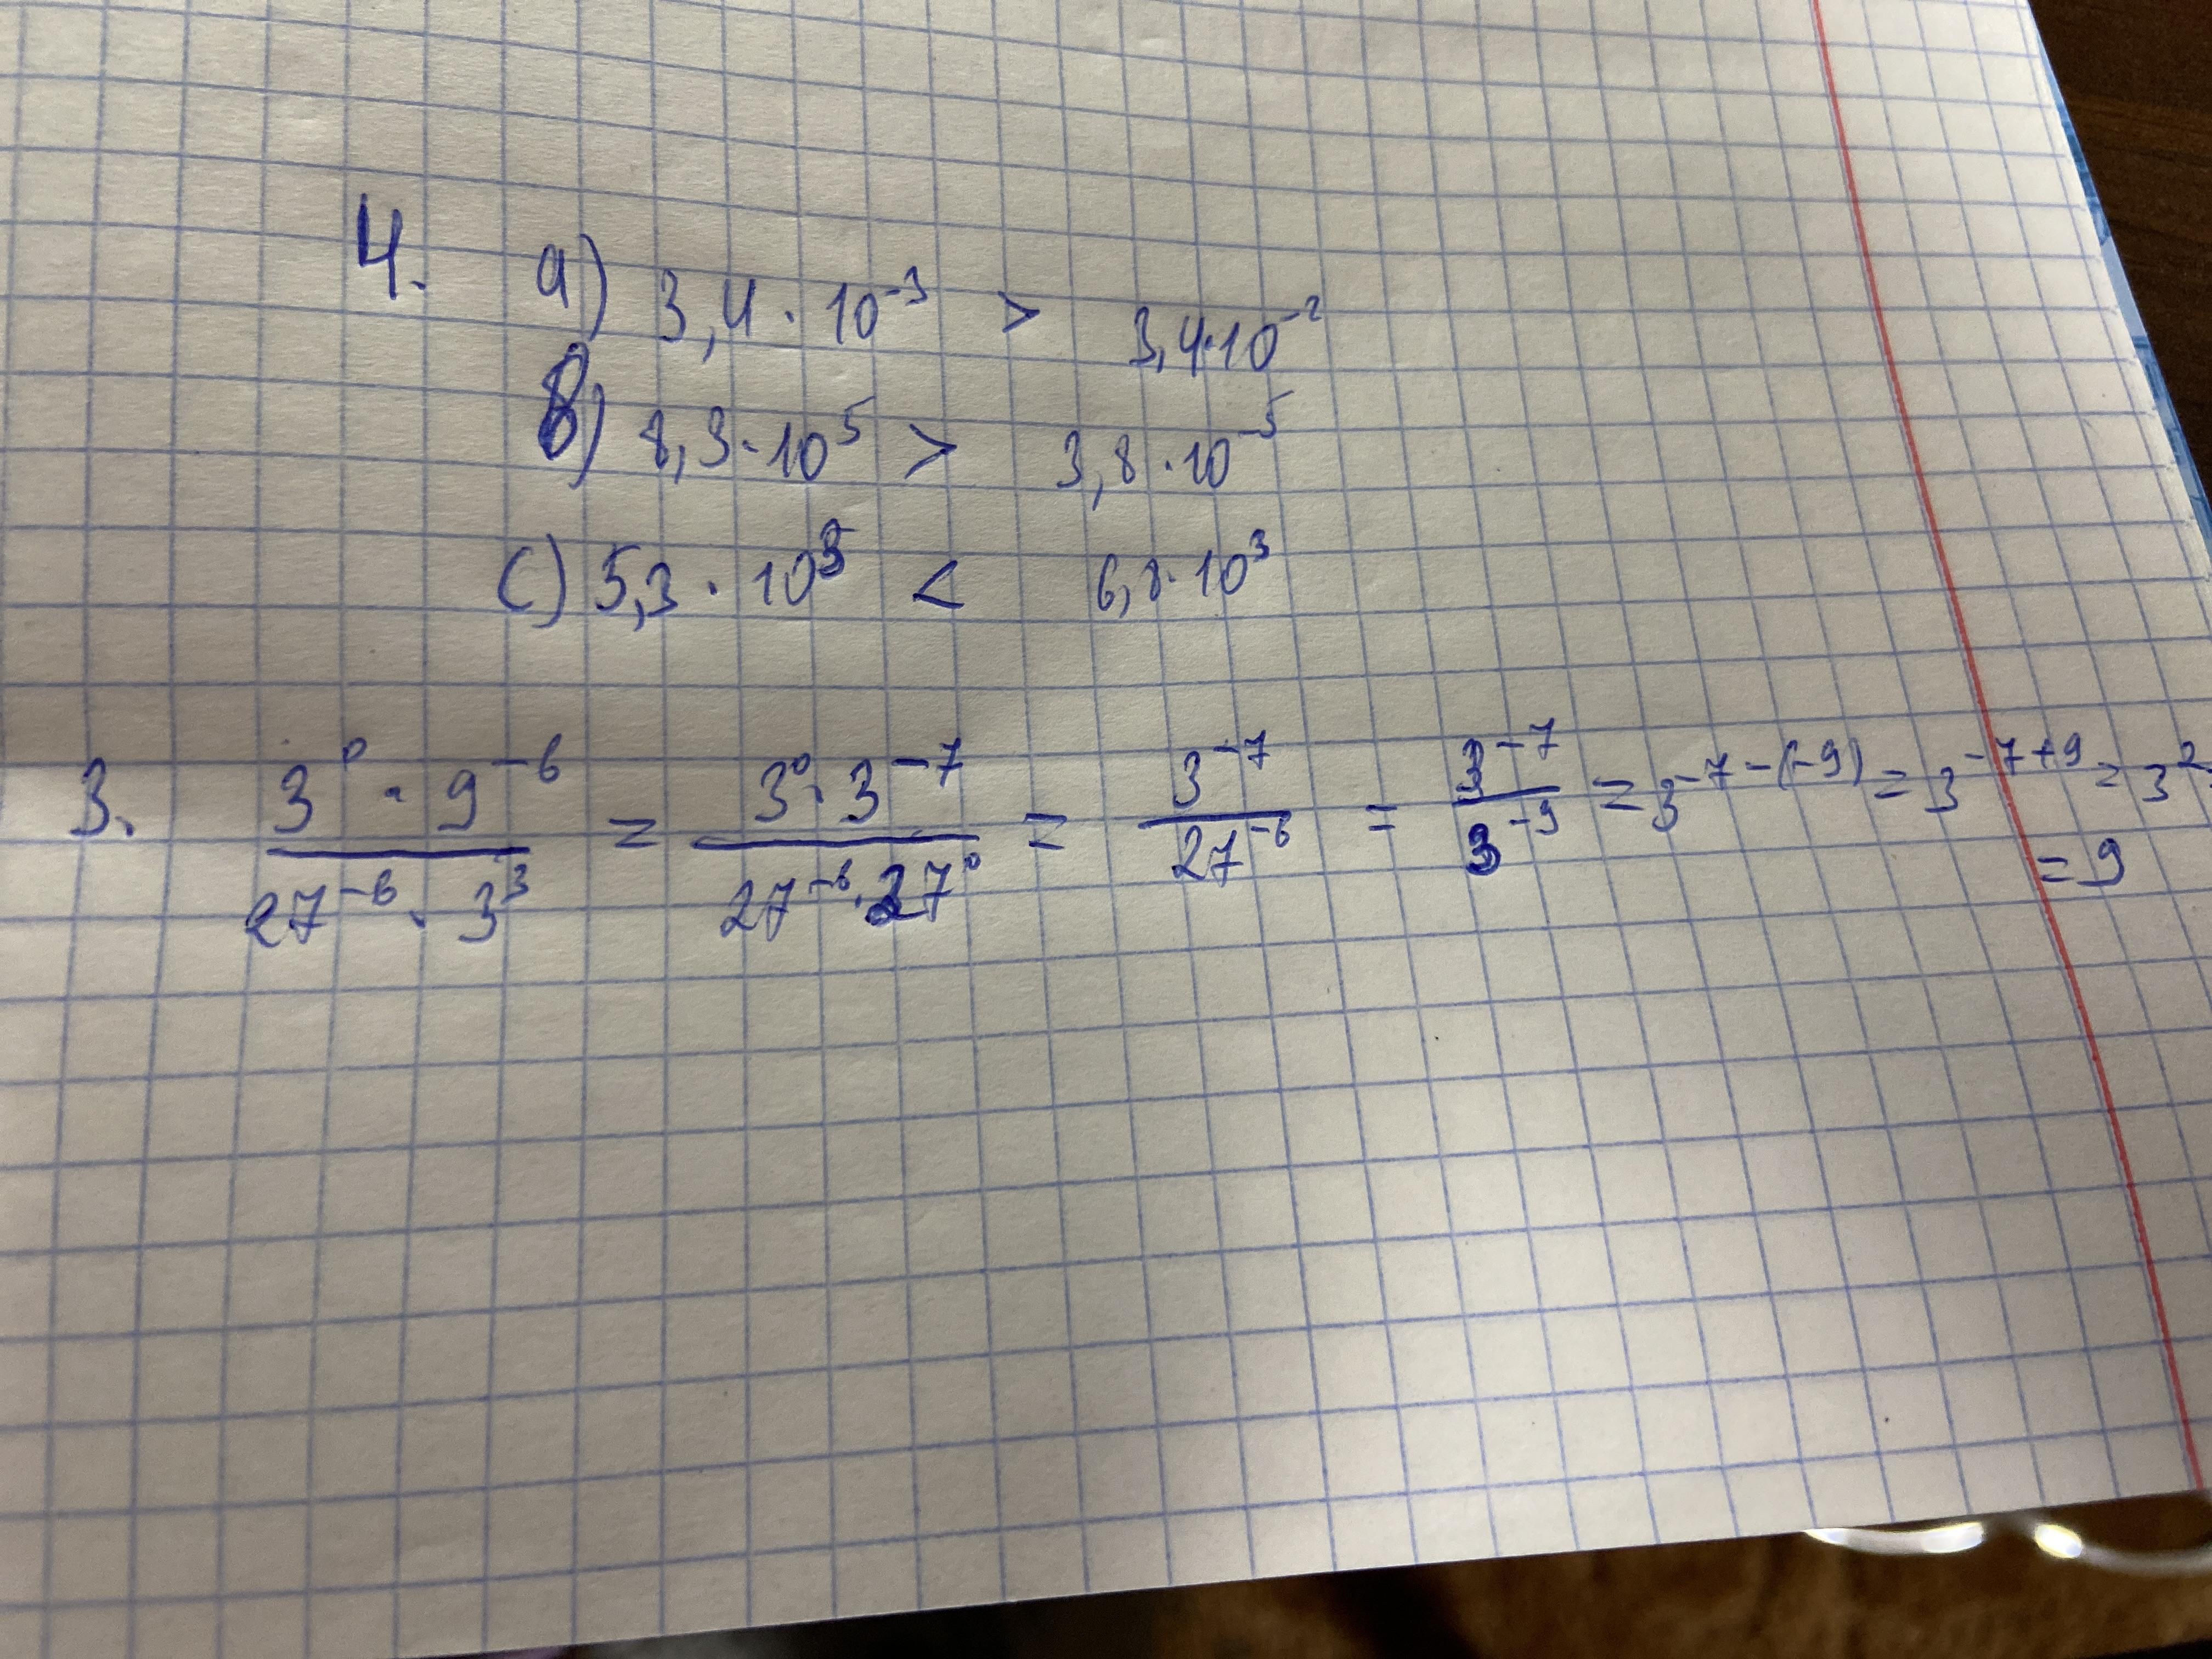 4. a) 3,4 · 10⁻³ > 3,4·10⁻²
B) 8,3·10⁵ > 3,8·10⁻⁵
c) 5,3 · 10³ < 6,8·10³
3. (3⁰ · 9⁻⁶)/(27⁻⁶ · 3³) = (3⁰ · 3⁻⁷)/(27⁻⁶ · 27⁰) = 3⁻⁷/27⁻⁶ = 3⁻⁷/3⁻⁹ = 3⁻⁷⁻⁽⁻⁹⁾ = 3⁻⁷⁺⁹ = 3² =
= 9